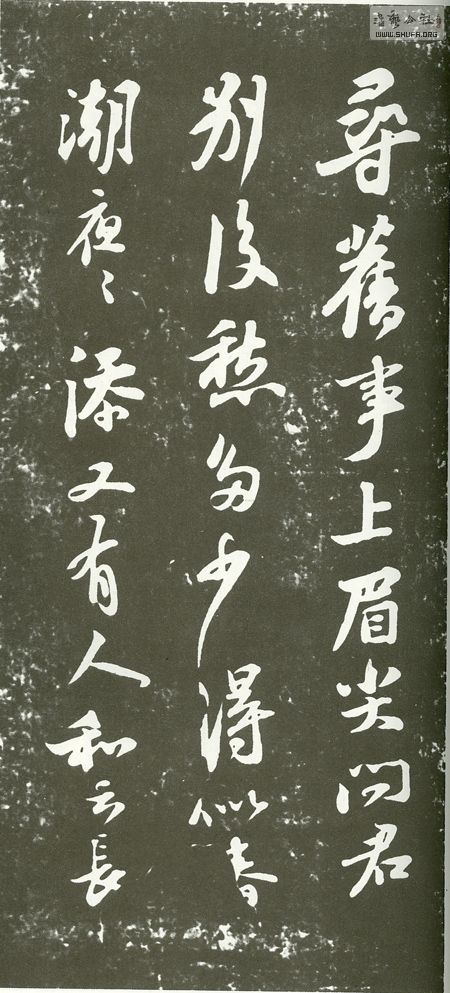 尋舊事上眉尖問君
別後愁多少得似春
潮夜〻添又有人和云長
WWW.SHUFA.ORG